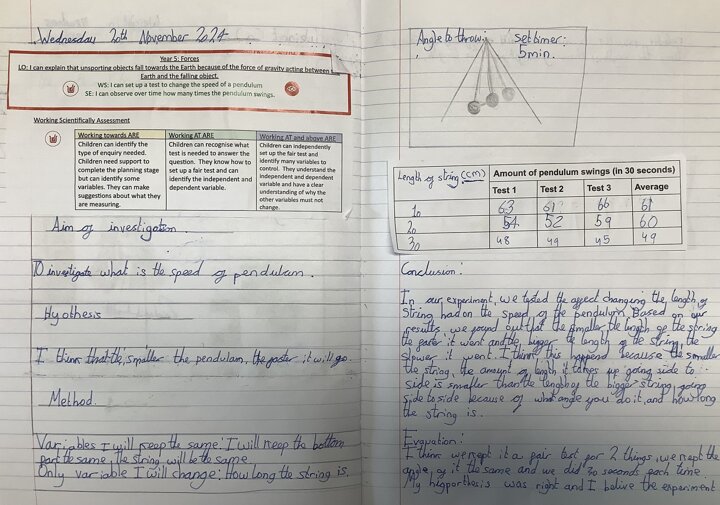 Wednesday 20th November 2024
Year 5: Forces
LO: I can explain that unsporting objects fall towards the Earth because of the force of gravity acting between
Earth and the falling object.
WS: I can set up a test to change the speed of a pendulum
SE: I can observe over time how many times the pendulum swings.
Working Scientifically Assessment
Working towards ARE
Children can identify the
type of enquiry needed.
Children need support to
complete the planning stage
but can identify some
variables. They can make
suggestions about what they
are measuring.
Working AT ARE
Children can recognise what
test is needed to answer the
question. They know how to
set up a fair test and can
identify the independent and
dependent variable.
Working AT and above ARE
Children can independently
set up the fair test and
identify many variables to
control. They understand the
independent and dependent
variable and have a clear
understanding of why the
other variables must not
change.
Aim of investigation.
To investigate what is the speed of pendulum.
Hyothesis
I think that the smaller the pendulam, the faster it will go.
Method.
Variables I will keep the same: I will keep the bottom
part the same, the string will be the same
Only variable I will change: How long the string is.
Angle to throw:
Set timer:
5 min.
Length of string (cm) Amount of pendulum swings (in 30 seconds)
Test 1 Test 2 Test 3 Average
10 63 61 66 61
20 54 52 59 60
30 48 49 45 49
Conclusion:
In our experiment, we tested the affect changing the length of
string had on the speed of the pendulum. Based on our
results, we found out that the smaller the length of the string
the faster it went and the bigger the length of the string the
slower it went. I think this happend because the smaller
the string, the amount of length it takes up going side to
side is smaller than the length of the bigger string going
side to side because of what angle you do it, and how long
the string is.
I think we kept it a fair test for 2 things, we kept the
angle of it the same and we did 30 seconds each time.
My was right and I belive the experiment